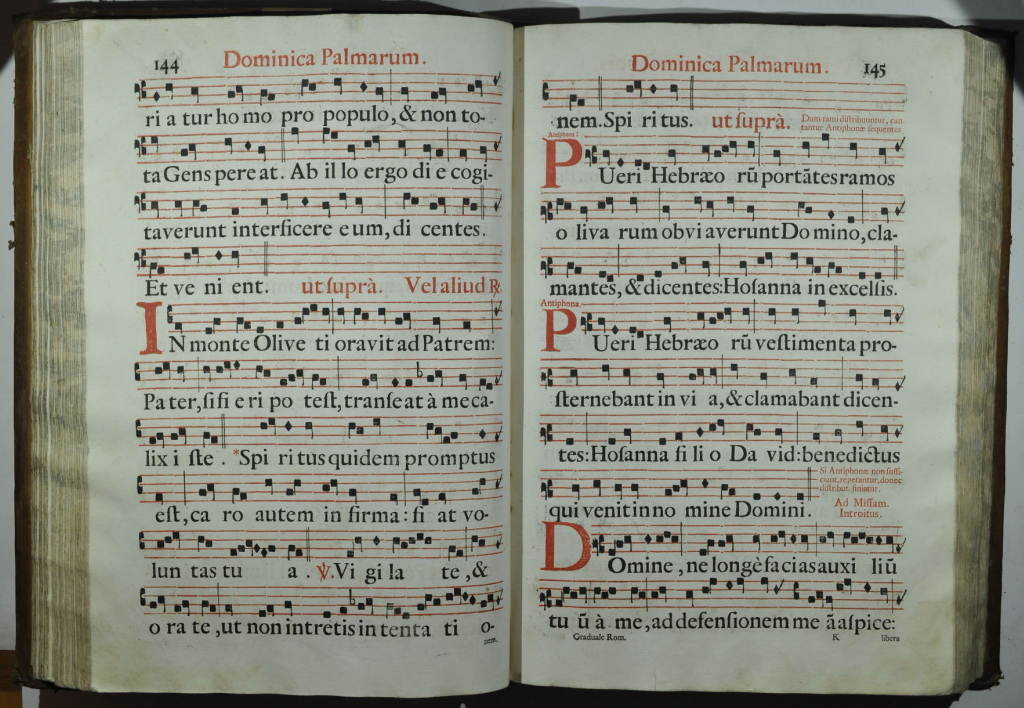 144 Dominica Palmarum.
ri a tur ho mo pro populo, & non to-
ta Gens pere at. Ab il lo ergo di e cogi-
taverunt interficere e um, di centes.
Et ve ni ent. ut suprà. Vel aliud ℟.
IN monte Olive ti oravit ad Patrem:
Pa ter, si fi e ri po test, transe at à me ca-
lix i ste. *Spi ri tus quidem promptus
est, ca ro autem in firma: fi at vo-
lun tas tu a. ℣. Vi gi la te, &
o ra te, ut non intretis in tenta ti o-
nem.
Dominica Palmarum. 145
nem. Spi ri tus. ut suprà. Dum rami distribuuntur, can-
tantur Antiphonæ sequentes
Antiphona.
PUeri Hebræo rũ portãtes ramos
o liva rum obvi averunt Do mino, cla-
mantes, & dicentes: Hosanna in excelsis.
Antiphona.
PUeri Hebræo rũ vestimenta pro-
sternebant in vi a, & clamabant dicen-
tes: Hosanna fi li o Da vid: benedictus
qui venit in no mine Domini. Si Antiphonæ non suffi-
ciant, repetantur, donec
distribut. finiatur.
Ad Missam.
Introitus.
DOmine, ne longè facias auxi liũ
tu ũ à me, ad defensionem me ã aspice:
Graduale Rom. K libera